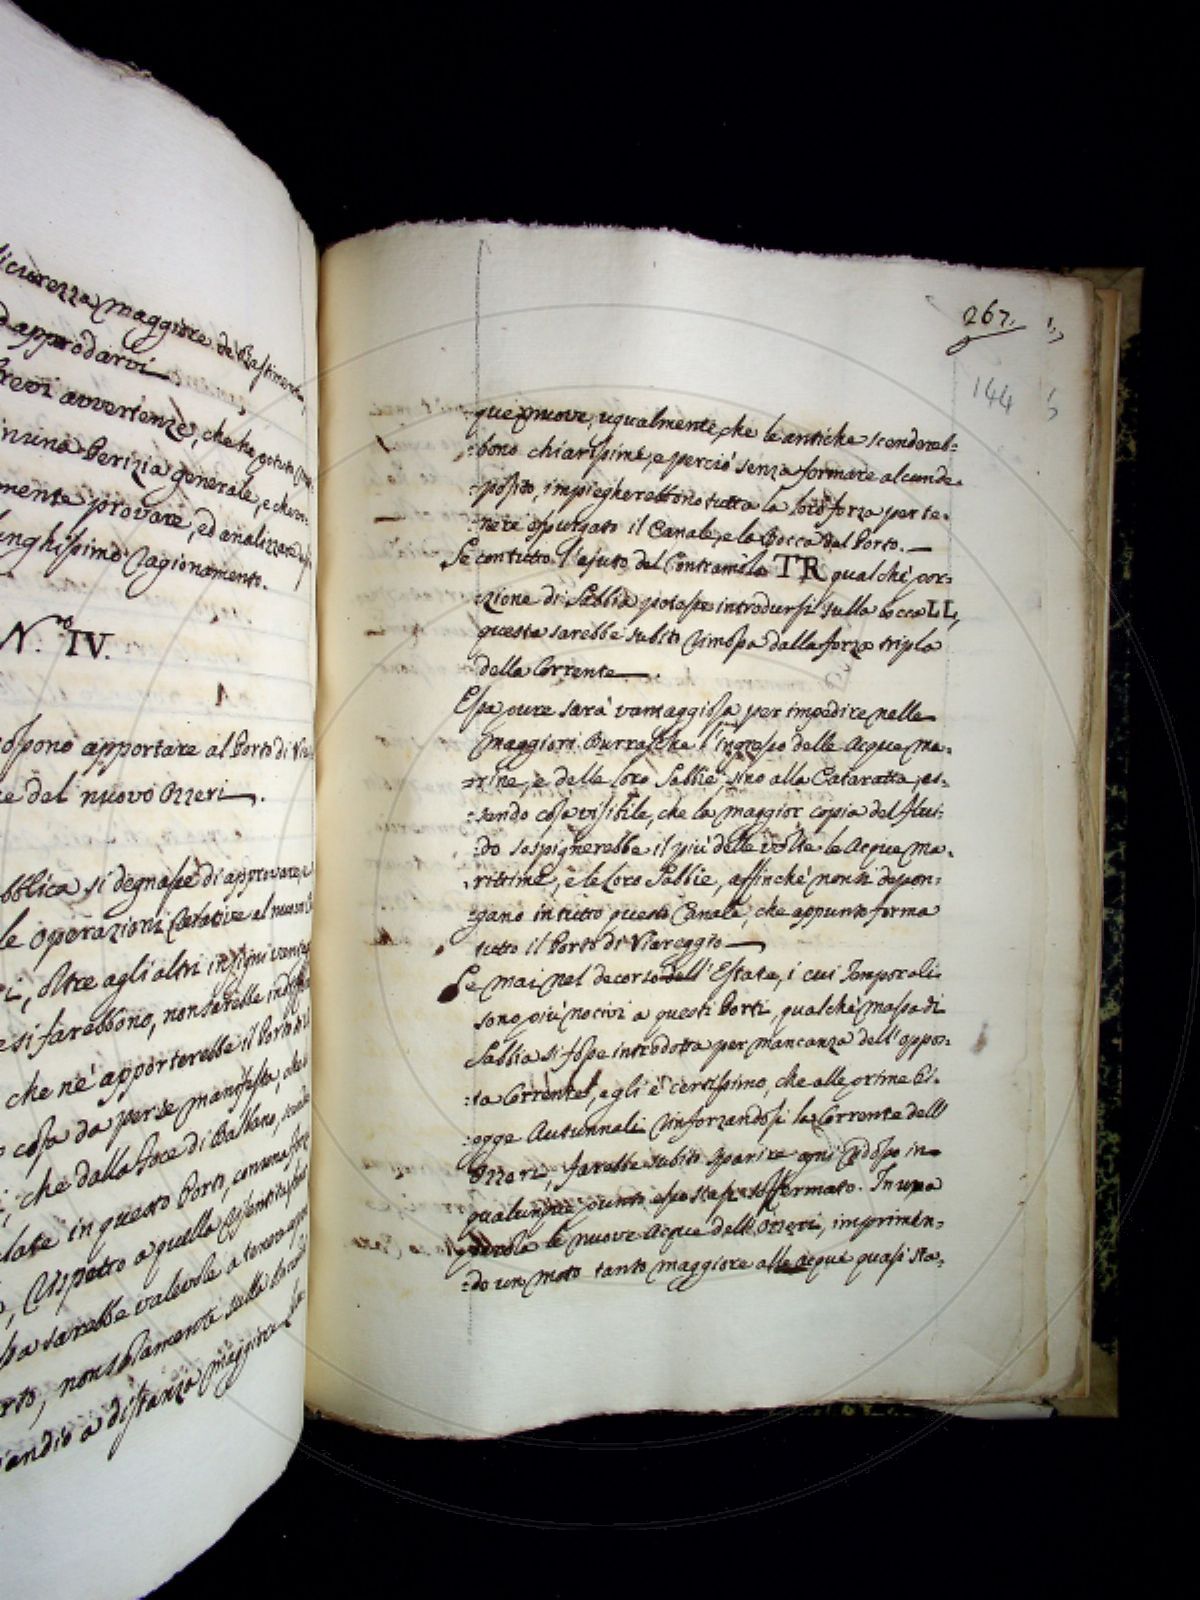 sicurezza maggiore de Bastimenti,
ad approdarvi
brevi avvertenze, che ho potuto
in una Perizia generale, e che
mente provare, ed analizzare
lunghissimo Ragionamento.
N.ro IV.
possono apportare al Porto di
e del nuovo Ozzeri.
bblica si degnasse di approvare,
le operazioni relative al nuovo
ri, oltre agli altri insigni
e si farebbono, non sarebbe
che ne apporterebbe il Porto di
cosa da per se manifesta, che
i, che dalla Foce di Balbano,
late in questo Porto, con una forza
o, rispetto a quella esistita
ssa sarebbe valevole a tenere
rto, non solamente sulla bocca
andio a distanza maggiore
267.
144
que nuove, ugualmente che le antiche scenderebbono
-bono chiarissime, e perciò senza formare alcun de-
-posito, impiegherebbono tutta la loro forza per te-
-nere espurgato il Canale, e la Bocca del Porto.
Se con tutto l'ajuto del Contramolo TR qualche por-
-zione di Sabbia potesse introdursi sulla bocca LL,
questa sarebbe subito rimossa dalla forza tripla
della Corrente.
Essa pure sarà vantaggiosa per impedire nelle
maggiori Burrasche l'ingresso delle Acque ma-
-rine, e delle loro Sabbie sino alla Cataratta, es-
-sendo cosa visibile, che la maggior copia del flui-
-do sospignerebbe il più delle volte le Acque ma-
-rittime, e le loro Sabbie, affinchè non si depon-
-gano in tutto questo Canale, che appunto forma
tutto il Porto di Viareggio
Se mai nel decorso dell'Estate, i cui Temporali
sono più nocivi a questi Porti, qualche massa di
Sabbia si fosse introdotta per mancanza dell'oppos-
-ta Corrente, egli è certissimo, che alle prime Pi-
-ogge Autunnali rinforzandosi la Corrente dell'
Ozzeri, farebbe subito sparire ogni Ridosso in
qualunque punto esso stasse formato. In una
parola le nuove Acque dell'Ozzeri, imprimen-
-do un moto tanto maggiore alle acque quasi sta-